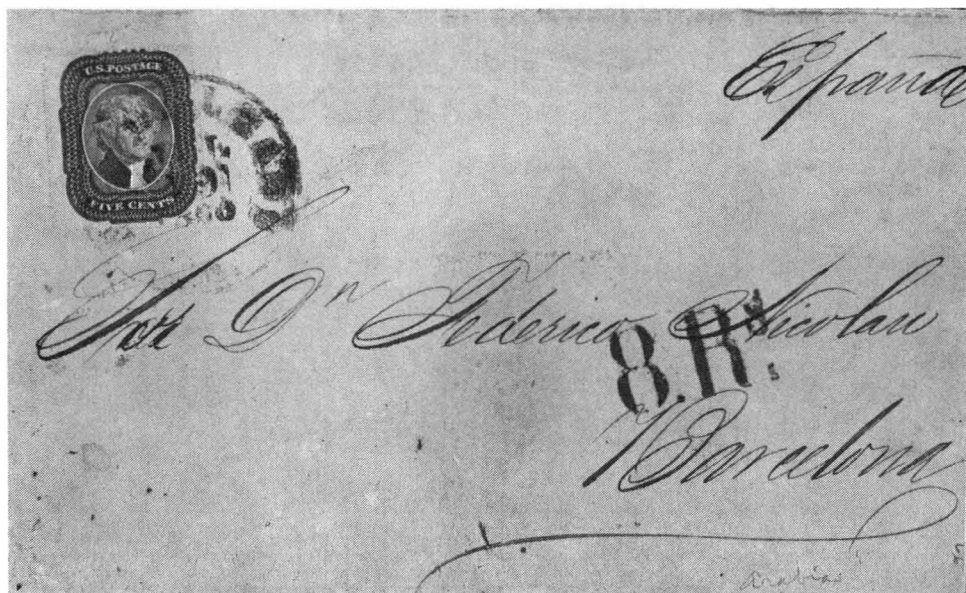 U.S. POSTAGE
FIVE CENTS
España
Sor Dn Federico Nicolau
8.Rs
Barcelona
Arabia